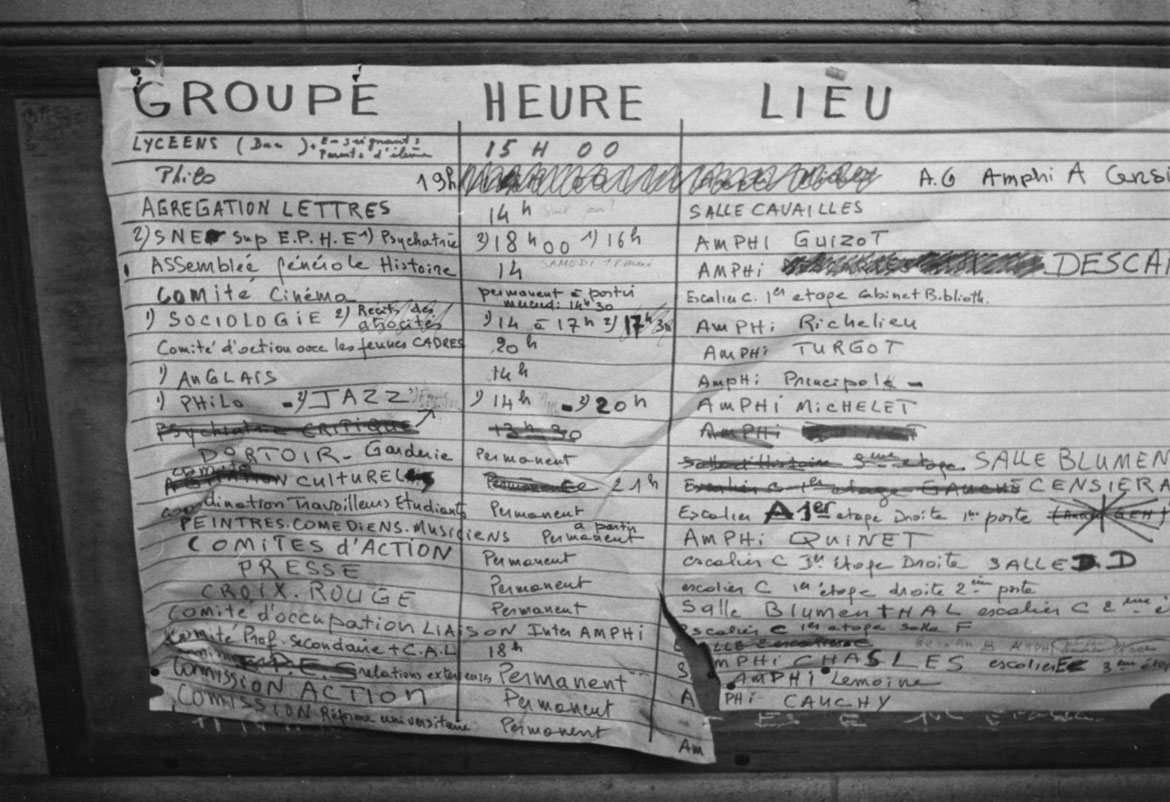 GROUPE HEURE LIEU
LYCEENS (Bac) + Enseignants 15 H 00
Parents d'élèves
Philo 19h A.G Amphi A Censi
AGREGATION LETTRES 14h SALLE CAVAILLES
2) SNE Sup E.P.H.E 1) Psychatrie 2) 18h00 1) 16h AMPHI GUIZOT
Assemblée générale Histoire 14 SAMEDI 18 mai AMPHI DESCAR
Comité Cinéma permanent à partir Escalier C. 1er etage Cabinet Biblioth.
mercredi: 14h30
1) SOCIOLOGIE 2) Recits des atrocités 1) 14 à 17h 2) 17h30 AMPHI Richelieu
Comité d'action avec les jeunes CADRES 20h AMPHI TURGOT
1) ANGLAIS 14h AmpHi Principale -
1) PHILO - 2) JAZZ 1) 14h - 2) 20h AMPHI MICHELET
Psychiatrie CRITIQUE 13h30 AMPHI
DORTOIR - Garderie Permanent Salle d'Histoire 3eme etage SALLE BLUMEN
Comité
AGITATION CULTUREL Permanent 21h Escalier C 1er etage GAUCHE CENSIER A
coordination Travailleurs Etudiants Permanent Escalier A 1er etage Droite 1ere porte
PEINTRES. COMEDIENS. MUSICIENS à partir Permanent AMPHI QUINET
COMITES d'ACTION Permanent escalier C 3em étage Droite SALLE D
PRESSE Permanent escalier C 1er étage droite 2eme porte
CROIX. ROUGE Permanent Salle BlumentHAL escalier C 2eme é
Comité d'occupation LIAISON Inter AMPHI escalier C 1er etage salle F
Comité Prof. secondaire + C.A.L 18h
relations exterieures Permanent AMPHI CHASLES escalier C 3eme éta
Comission ACTION Permanent AMPHI Lemoine
COMISSION Réforme universitaire Permanent PHI CAUCHY
Am